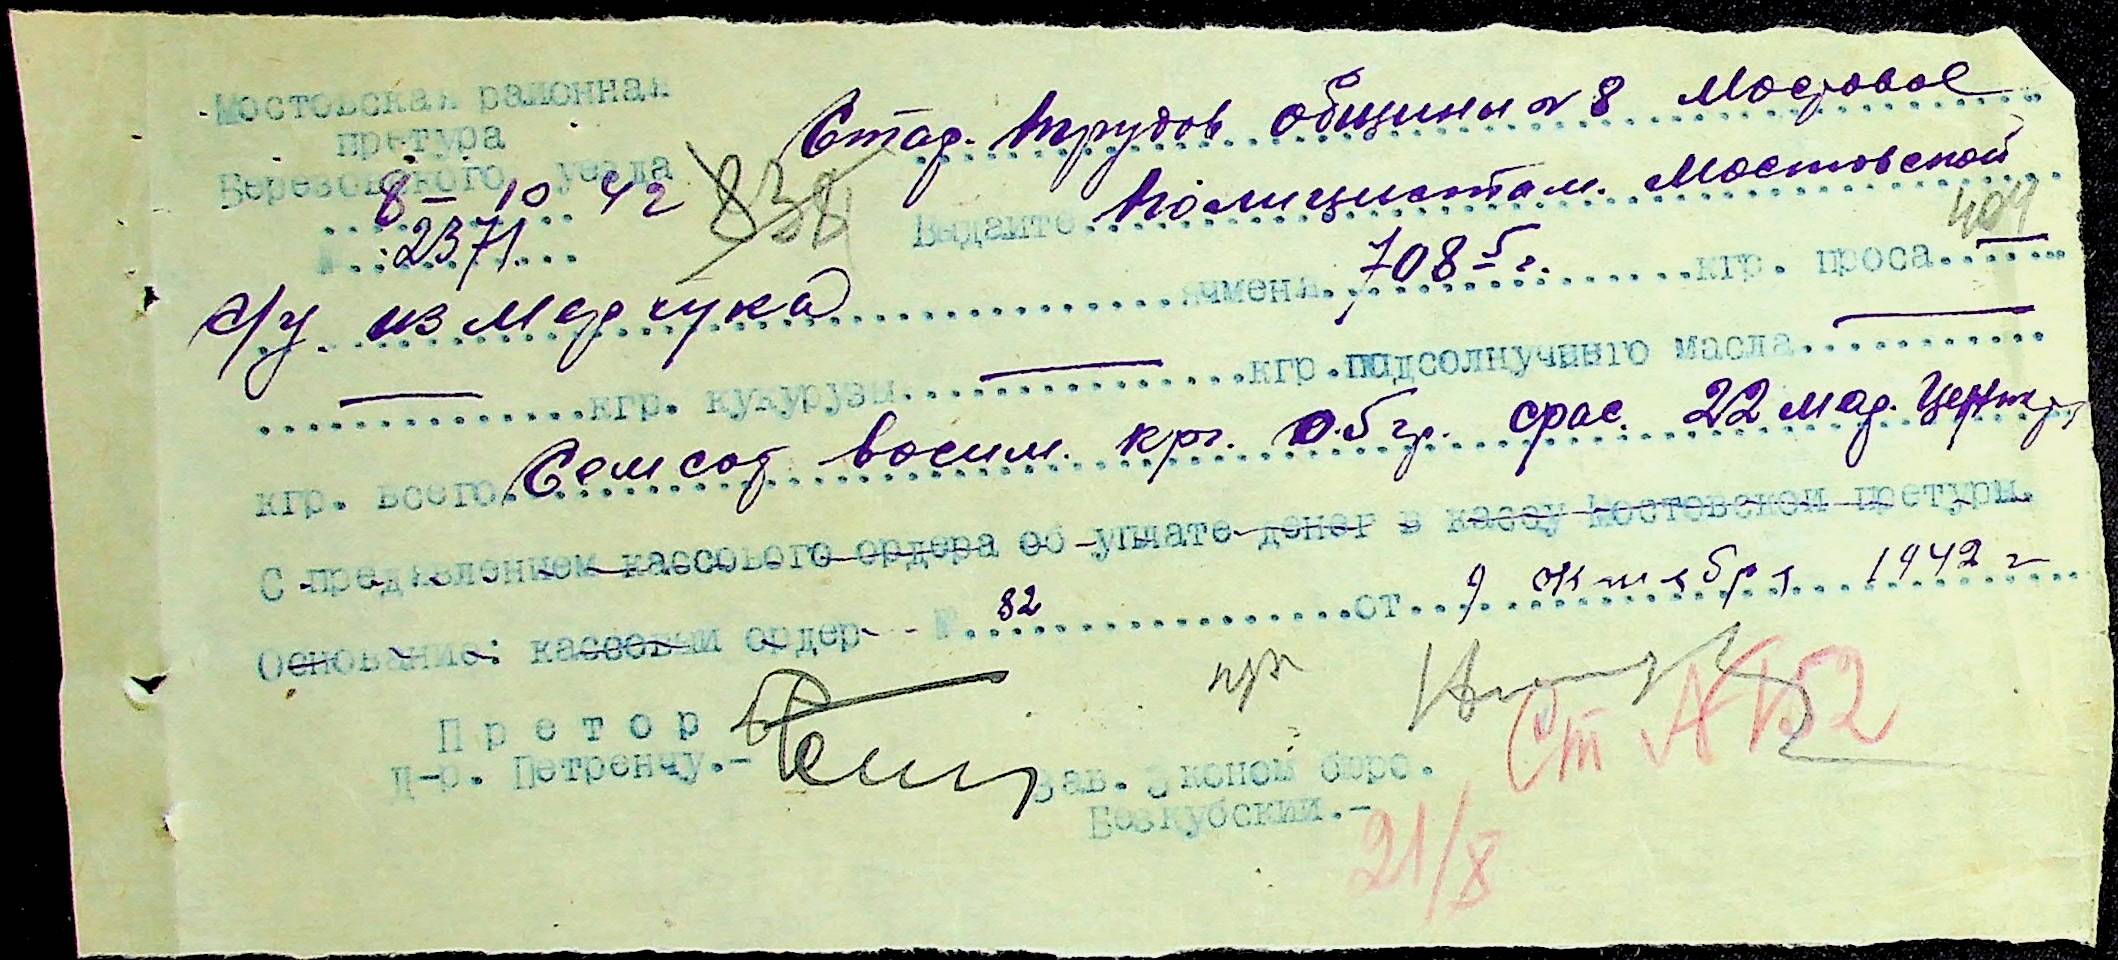 Мостовская районная
претура
Березовского уезда
8 - 10 42
№ 2371
838
Стар. трудов. общины № 8 Мостовое
Выдайте Полицистам. Мостовской
404
с/у из Мартука ячменя 708 5 г. кгр. проса —
— кгр. кукурузы — кгр. подсолнучнго масла —
кгр. всего Семсот восим. кгр. 0.5 гр.
С предявлением кассового ордера об уплате денег в кассу Мостовской претуры.
Основание: кассовый ордер № 82 от 9 октября 1942 г
Претор
Д-р. Петренчу.-
Зав. Эконом бюро.
Безкубский.-
21/8